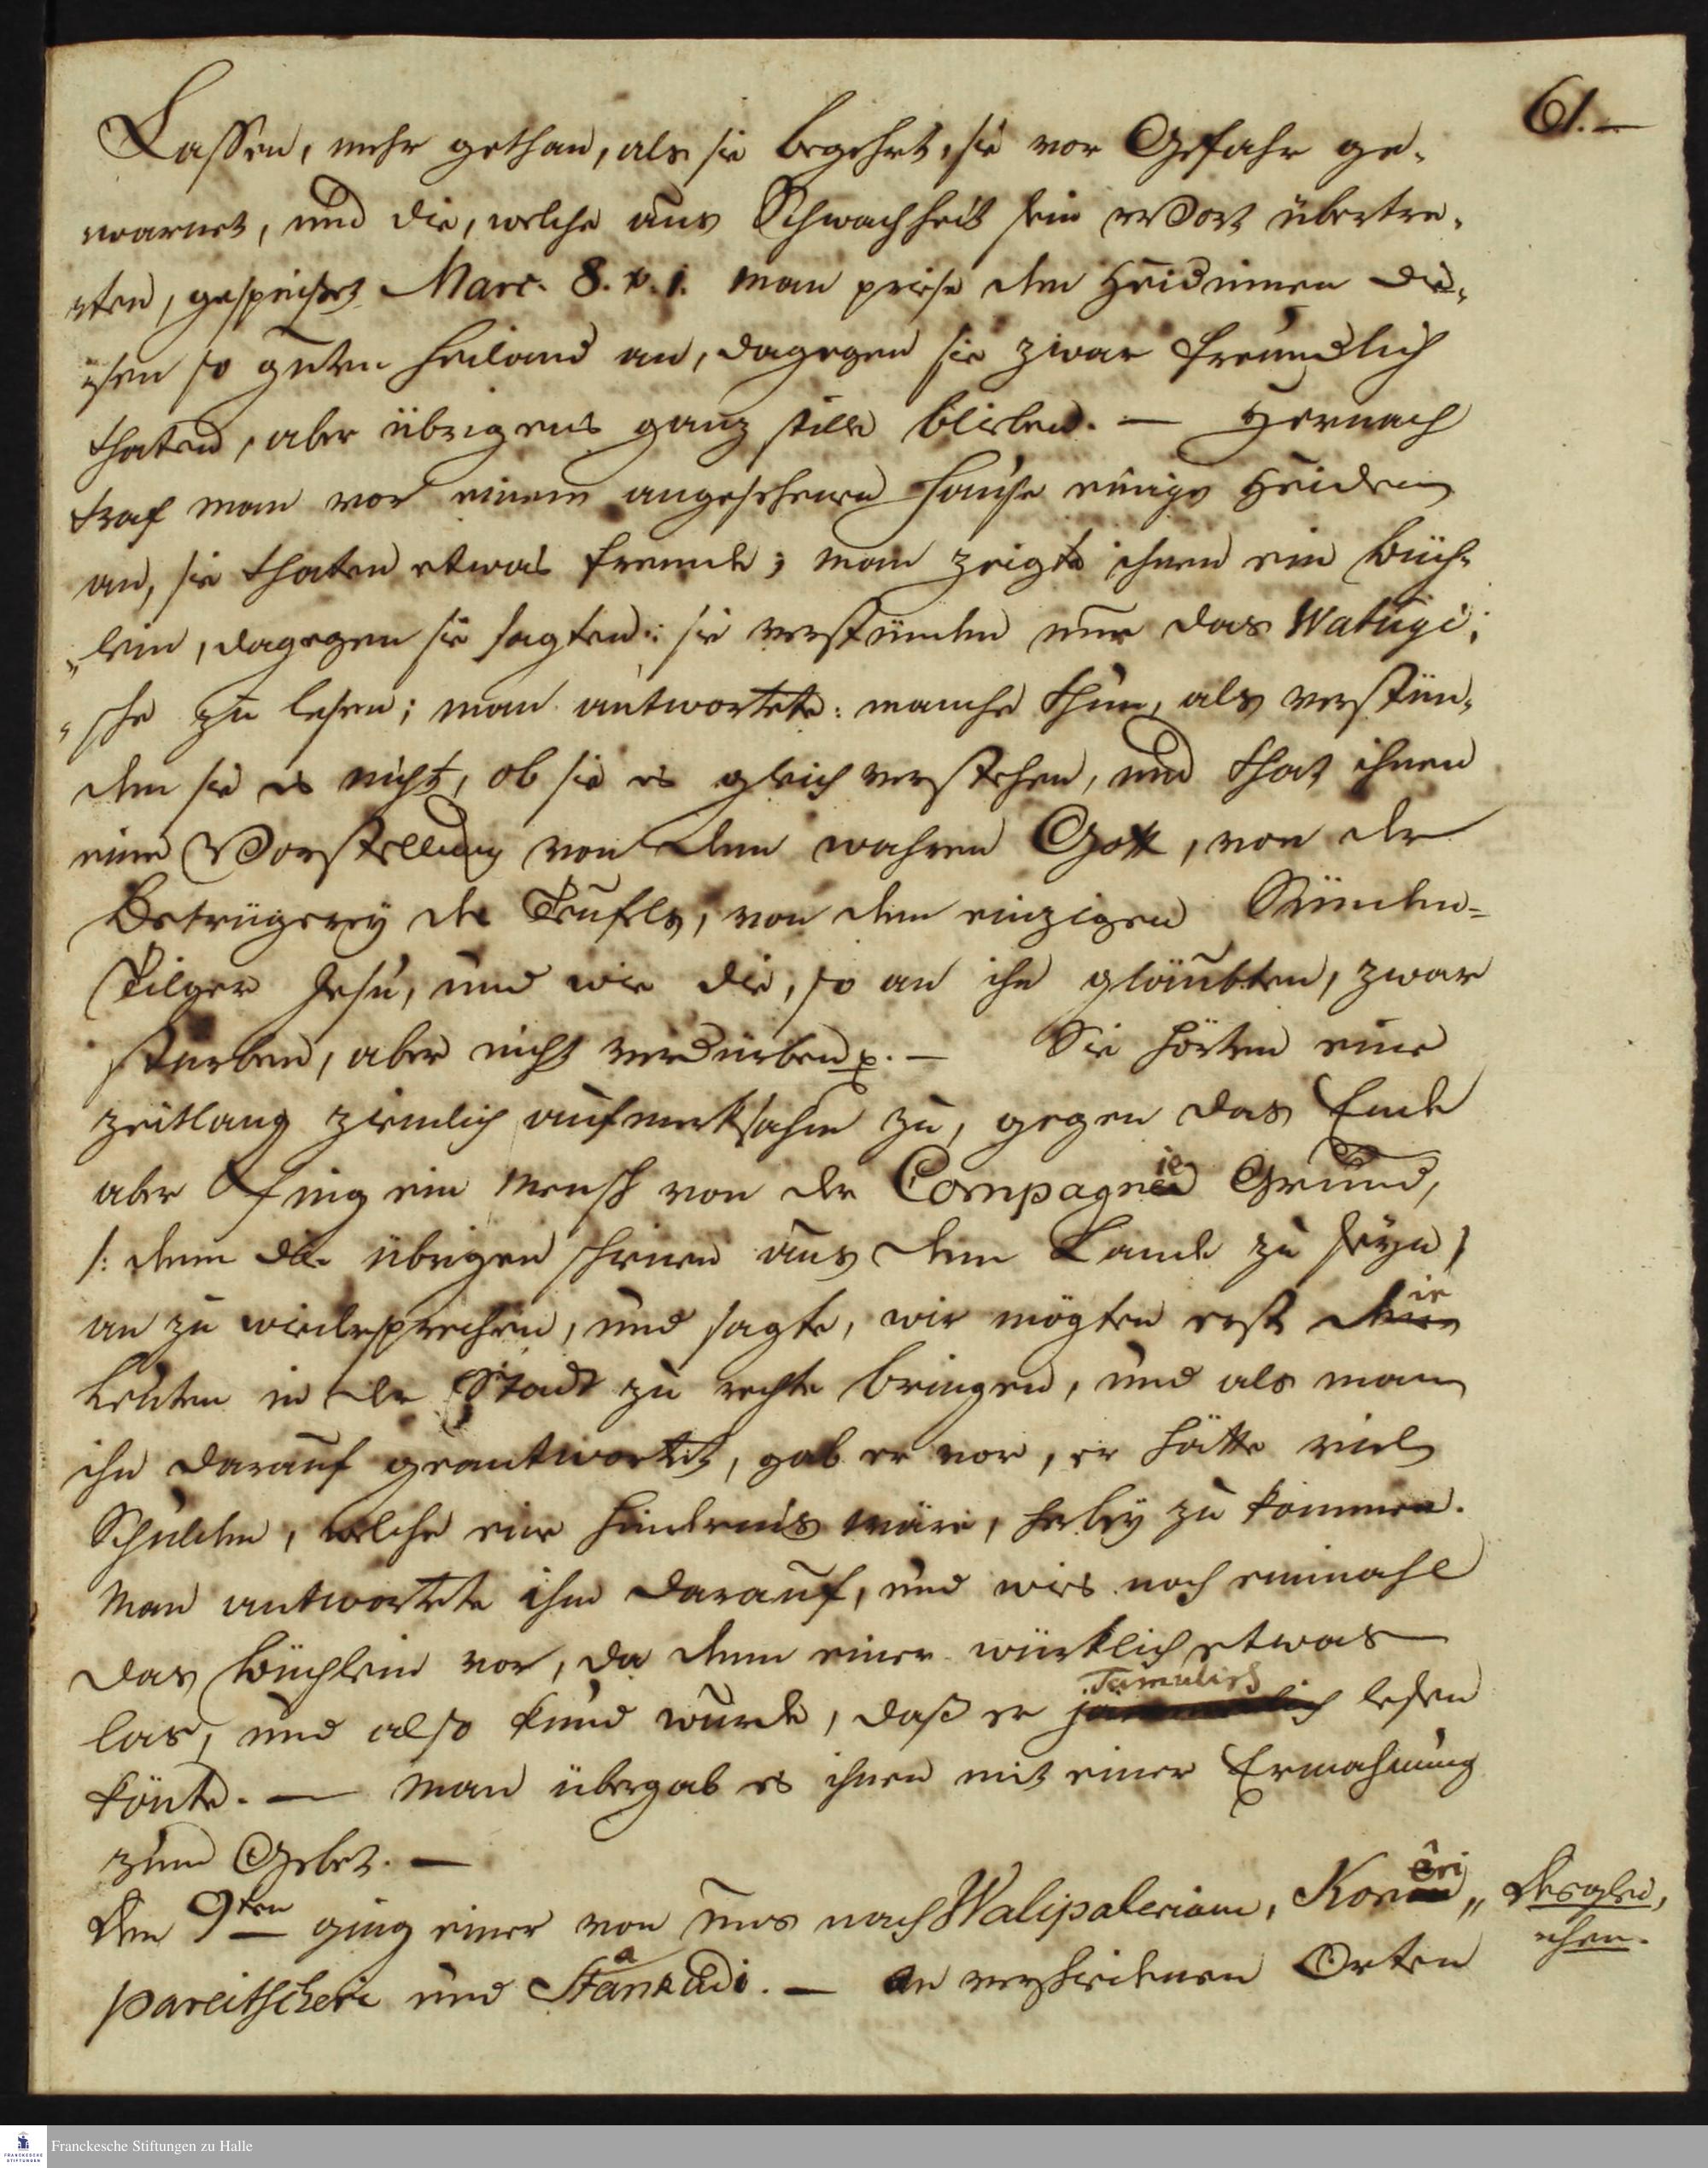 61.
Lassen, mehr gethan, als sie begehrt, sie vor Gefahr ge-
warnet, und die, welche aus Schwachheit sein Wort übertre-
ten, gespeiset Marc. 8. v. 1. man priese den Heidinnen die-
sen so guten Heiland an, dagegen sie zwar freundlich
thaten, aber übrigens ganz stille blieben. — Hernach
traf man vor einem angesehenen Hause einige Heiden
an, sie thaten etwas fremde; man zeigte ihnen ein Büch-
lein, dagegen sie sagten: sie verstünden nur das Watugi-
sche zu lesen; man antwortete: manche thun, als verstün-
den sie es nicht, ob sie es gleich verstehen, und that ihnen
eine Vorstellung von dem wahren Gott, von der
Betrügerey des Teufels, von dem einzigen Sünden-
tilger Jesu, und wie die, so an ihn gläubten, zwar
sturben, aber nicht verdürben p. — Sie hörten eine
zeitlang ziemlich aufmerksahm zu, gegen das Ende
aber fing ein Mensch von der Compagnie Grund,
/: denn die übrigen schienen aus dem Lande zu seyn /
an zu wiedersprechen, und sagte, wir mögten erst die
Leuten in der Stadt zu rechte bringen, und als man
ihn darauf geantwortet, gab er vor, er hätte viel
Schulden, welche eine Hindernis wäre, herbey zu kommen.
Man antwortete ihm darauf, und wies noch einmahl
das Büchlein vor, da denn einer würklich etwas
las, und also kund wurde, daß er Tamulisch lesen
könte. — Man übergab es ihnen mit einer Ermahnung
zum Gebet. —
Den 9ten ging einer von uns nach Walipaleiam, Koneri„
pareitscheri und Stankudi. — An verschiedenen Orten
Desglei-
chen.
Franckesche Stiftungen zu Halle